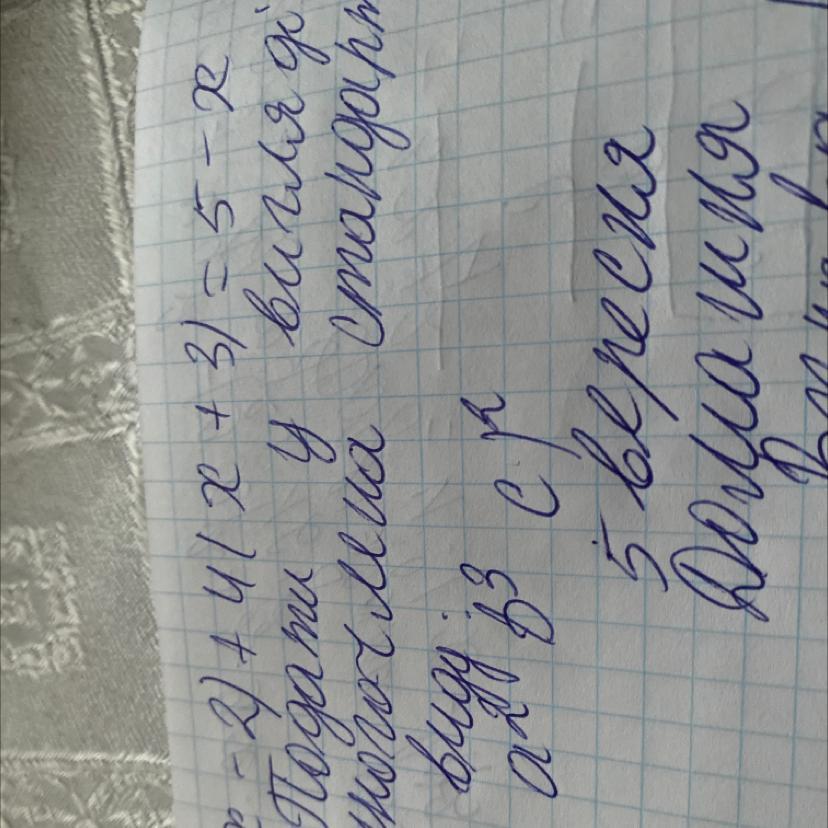 - 2) + 4(x + 3) = 5 - x
Подати у вигляді
многочлена стандарт
виду:
a² b³ c
5 вересня
Домашня